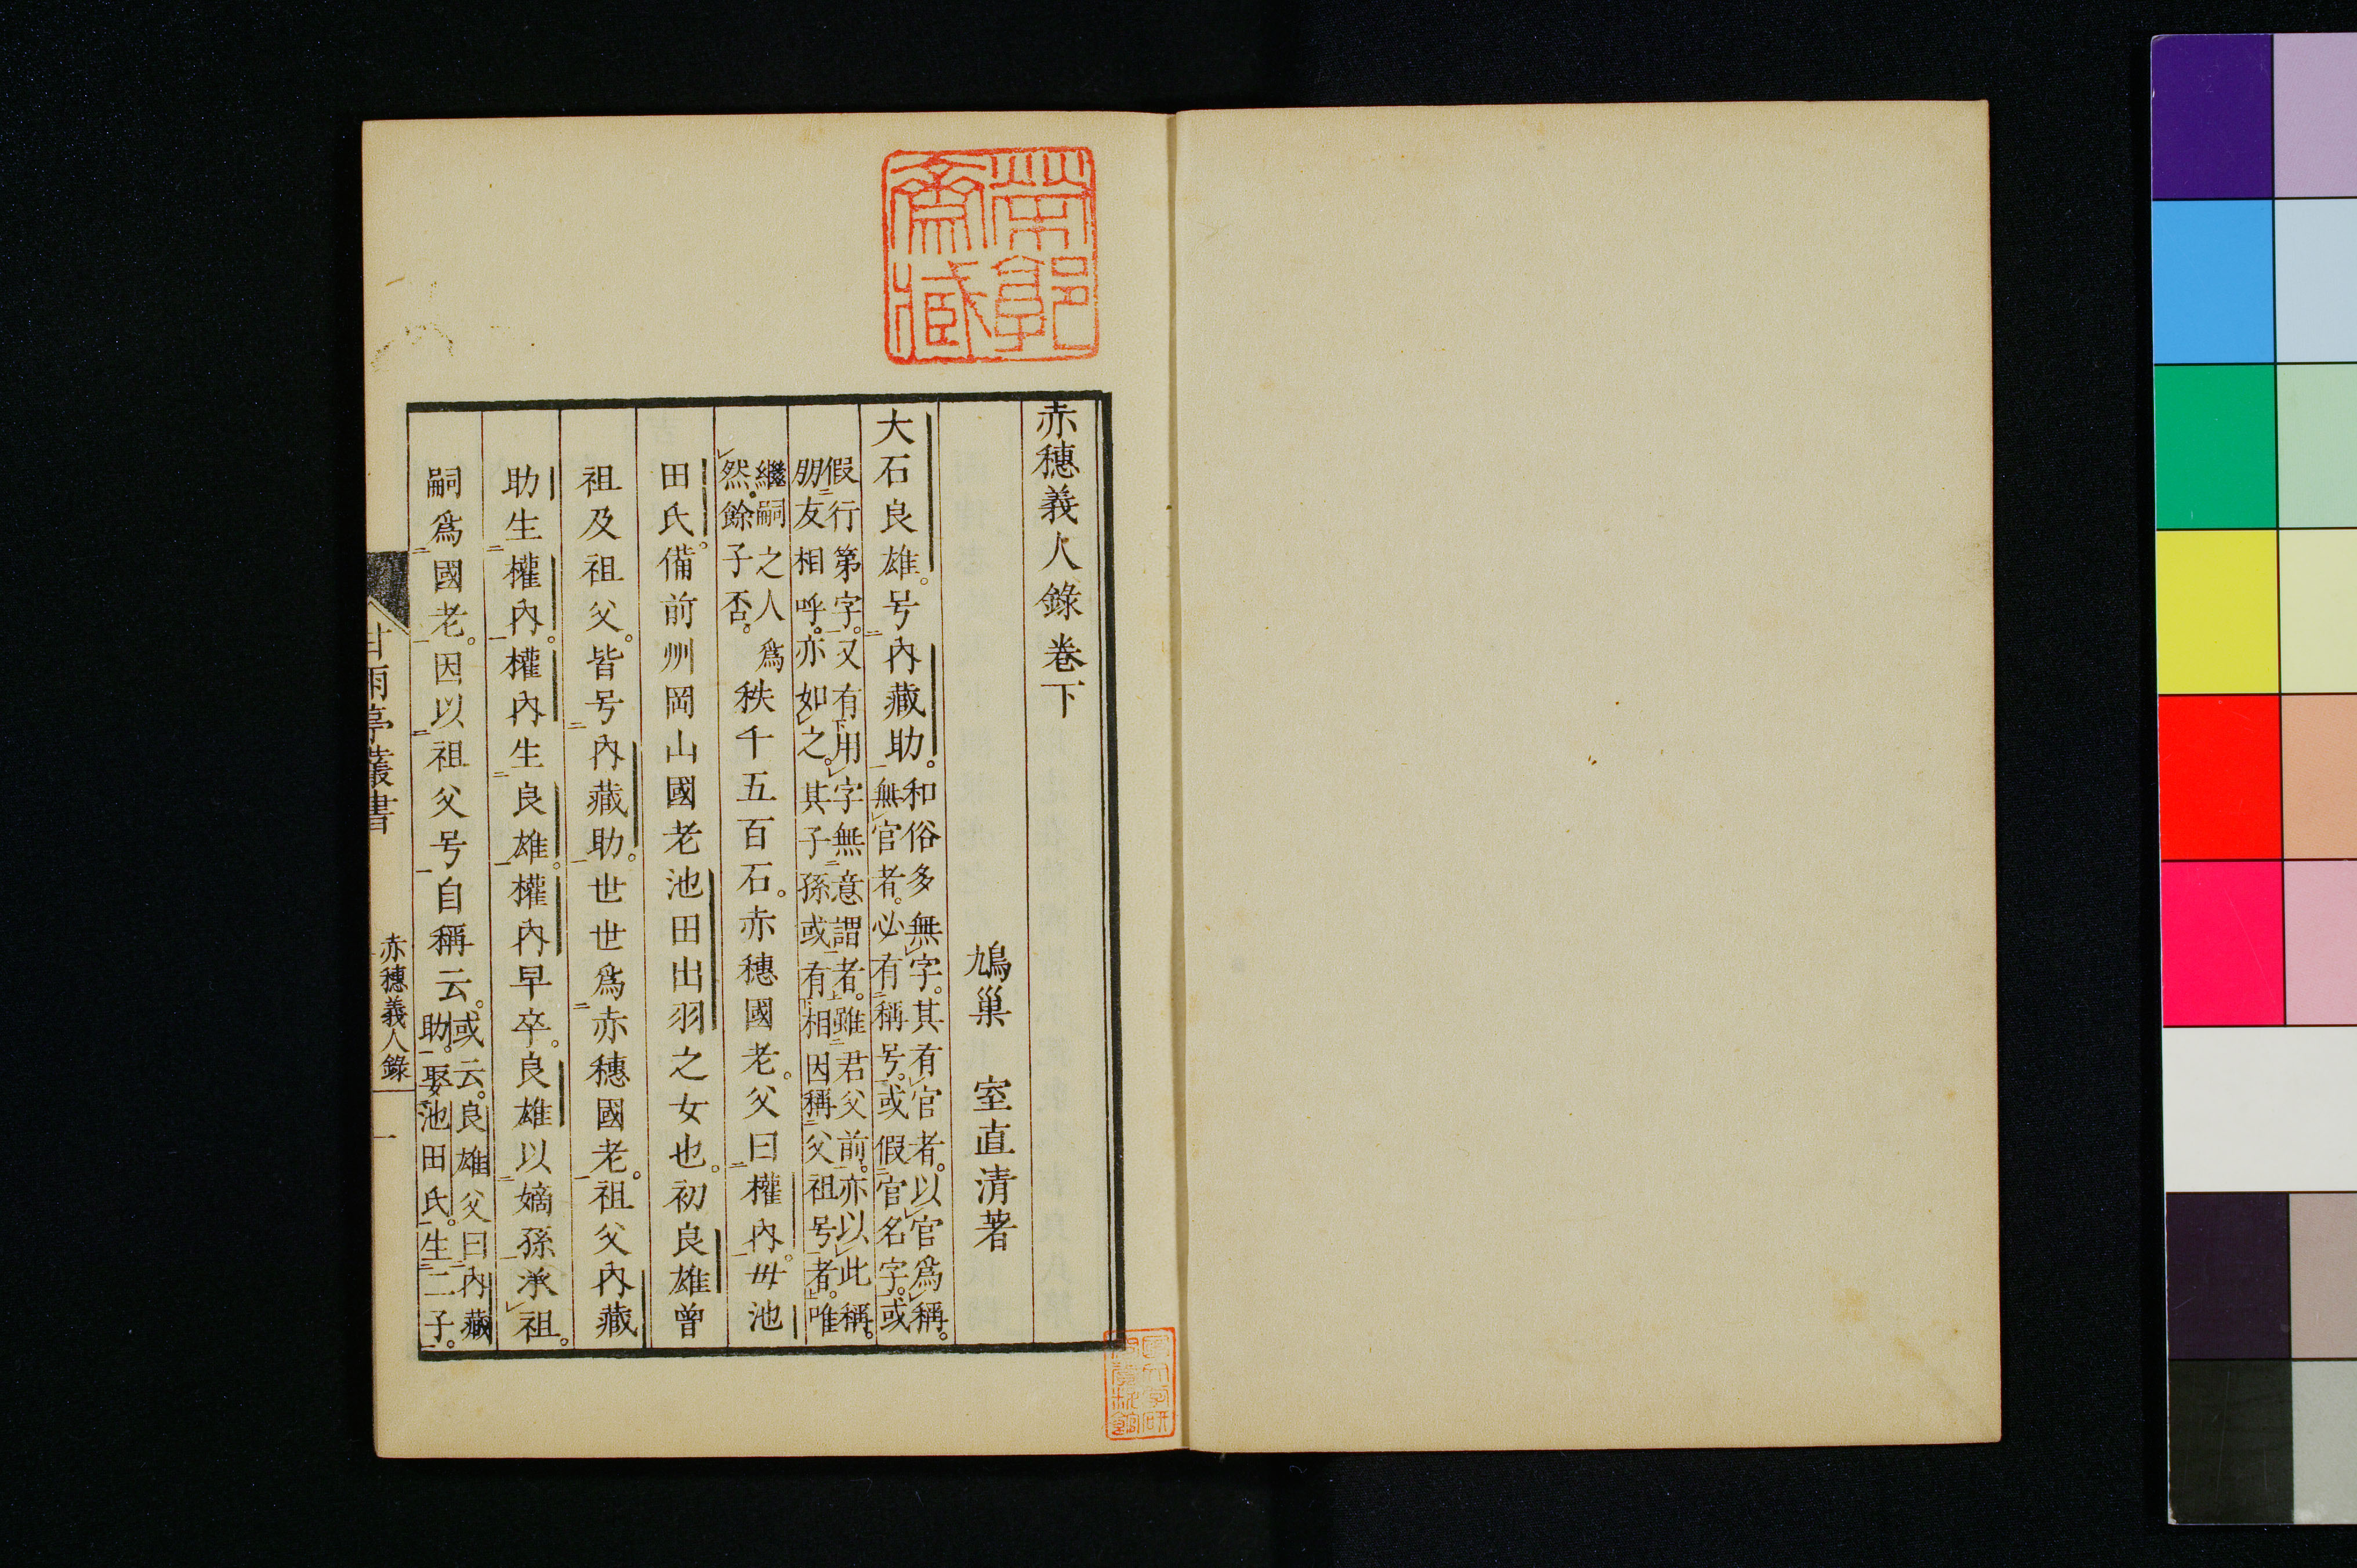 赤穗義人錄卷下
鳩巢 室直清著
大石良雄。号內藏助。和俗多無字。其有官者。以官爲稱。
無官者。必有稱号。或假官名字。或
假行第字。又有用字無意謂者。雖君父前。亦以此稱。
朋友相呼。亦如之。其子孫或有相因稱父祖号者。唯
繼嗣之人爲
然。餘子否。
秩千五百石。赤穗國老。父曰權內。母池
田氏。備前州岡山國老池田出羽之女也。初良雄曾
祖及祖父。皆号內藏助。世世爲赤穗國老。祖父內藏
助生權內。權內生良雄。權內早卒。良雄以嫡孫承祖。
嗣爲國老。因以祖父号自稱云。或云。良雄父曰內藏
助。娶池田氏。生二子。
甘雨亭叢書
赤穗義人錄
一
帶郭
齋藏